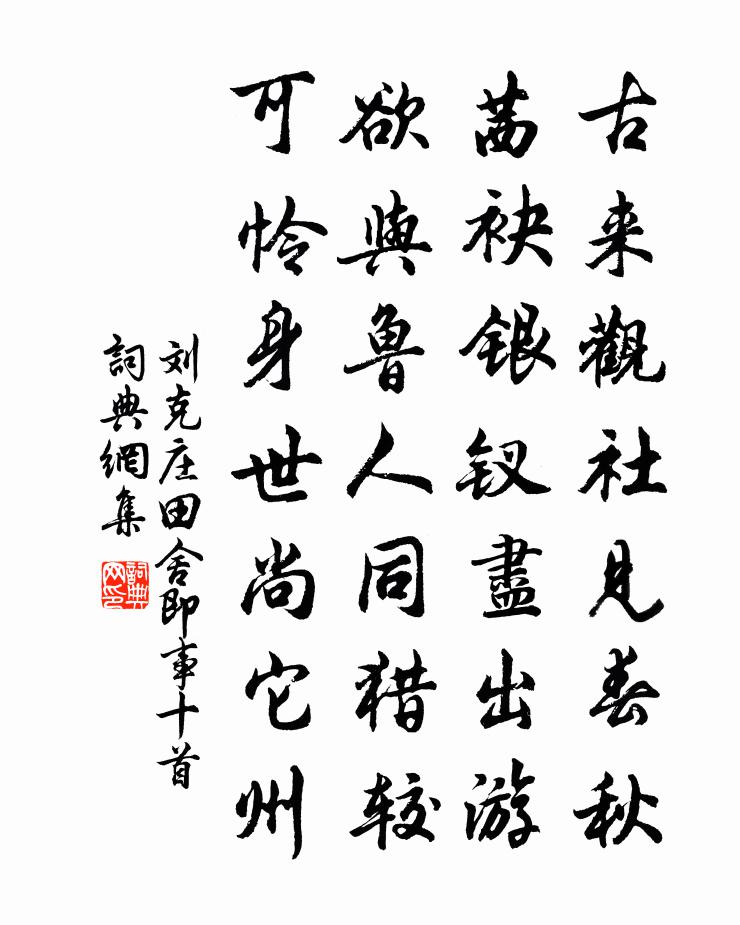 古来觀社見春秋
茜袂銀钗盡出游
欲與魯人同猎较
可怜身世尚它州
刘克庄田舍即事十首
詞典網集
詞典网印